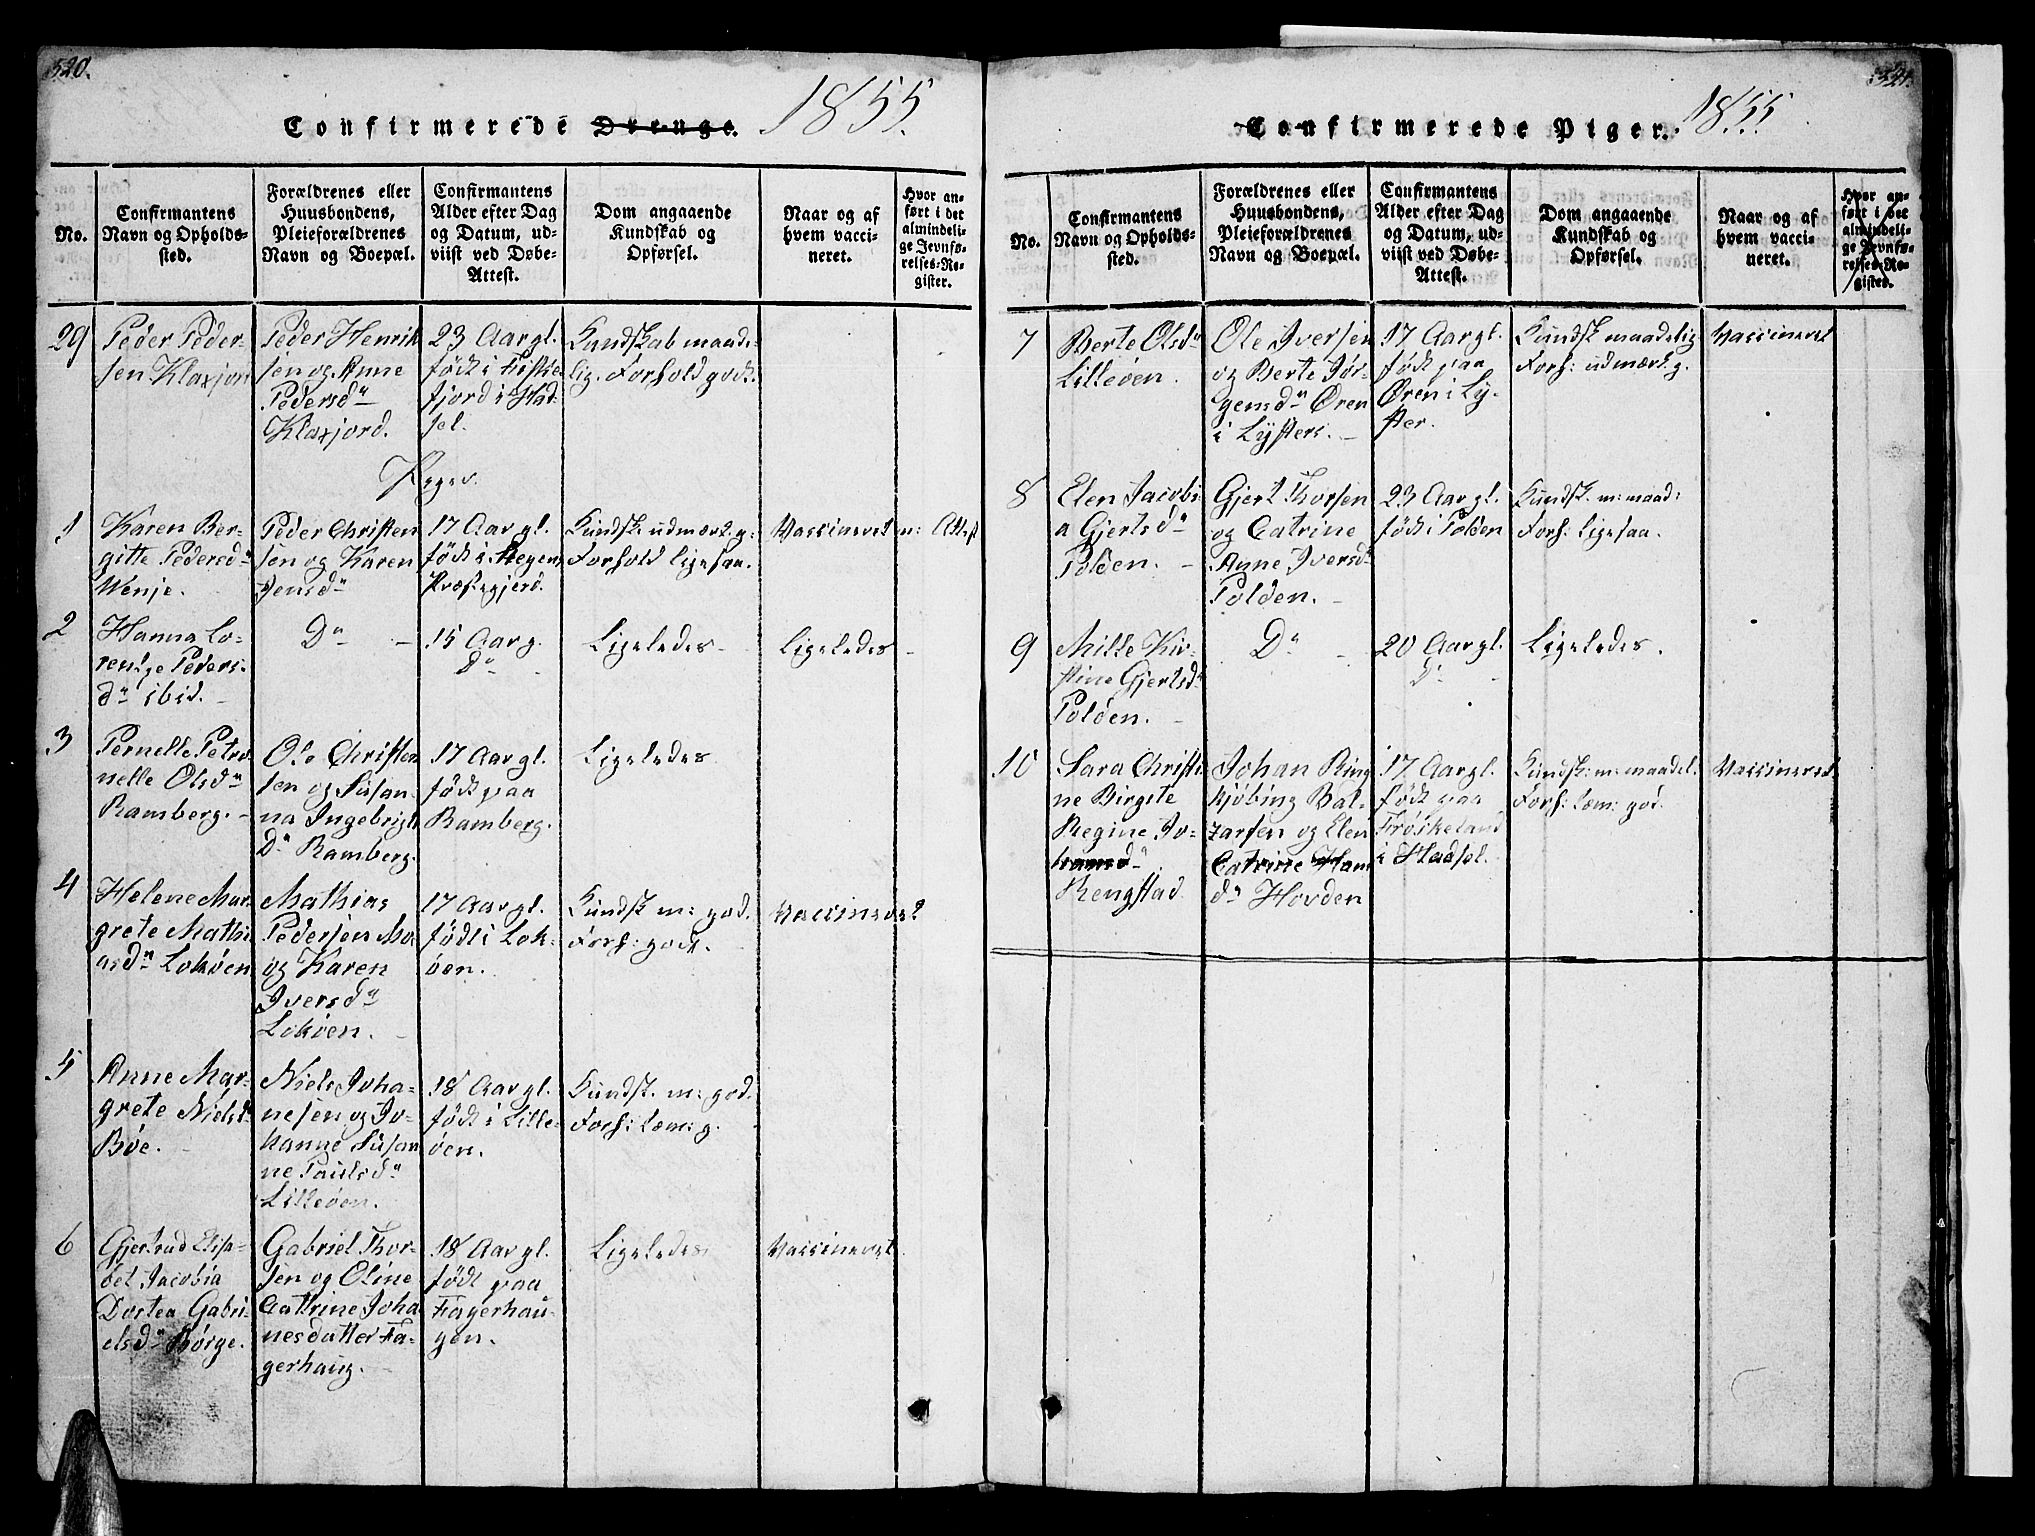 320.
Confirmerede Drenge. 1855.
No.
Confirmantens
Navn og Opholds-
sted.
Forældrenes eller
Huusbondens,
Pleieforældrenes
Navn og Boepæl.
Confirmantens
Alder efter Dag
og Datum, ud-
viist ved Døbe-
Attest.
Dom angaaende
Kundskab og
Opførsel.
Naar og af
hvem vacci-
neret.
Hvor an-
ført i det
almindeli-
ge Jevnfø-
relses-Re-
gister.
29
Peder Peder-
sen Klaxjord
Peder Henrik
sen og Anne
Pedersdn
Klaxjord.
23 Aar gl.
født i Fiskfie
fjord i Had-
sel.
Kundskab maade-
lig. Forhold godt.
Piger.
1
Karen Ber-
gitte Pedersdn
Wenje.
Peder Christen
sen og Karen
Jensdn
17 Aar gl.
født i Stegens
Præstegjeld.
Kundsk. udmærk. g:
Forhold ligesaa.
Vaccineret m: Attest
2
Hanna Lo-
rentze Peders-
dn ibid.
Dn
15 Aar g.
Dn
Ligeledes
Ligeledes
3
Pernelle Petro
nelle Olsdn
Ramberg.
Ole Christen
sen og Susan-
na Ingebrigt
Dn Ramberg.
17 Aar gl.
født paa
Ramberg.
Ligeledes
4
Helene Mar-
grete Mathi
asdn Lokøen
Mathias
Pedersen Mo
og Karen
Iversdn
Lokøen.
17 Aar gl.
født i Lok-
øen.
Kundsk m: god.
Forh: godt.
Vaccineret
5
Anne Mar-
grete Nielsd
Bøe.
Niels Joha-
nesen og Jo-
hanne Susan
ne Paulsdn
Lilleøen.
18 Aar gl.
født i Lille-
øen.
Kundsk. m: god.
Forh: tem: g.
6
Gjertrud Elisa-
bet Jacobia
Dortea Gabri-
elsdn Børge.
Gabriel Thor-
sen og Oline
Cathrine Joha
nesdatter Fa-
gerhaug.
18 Aar gl.
født paa
Fagerhau-
gen.
Ligeledes
Vaccineret
321.
Confirmerede Piger. 1855.
No.
Confirmantens
Navn og Opholds-
sted.
Forældrenes eller
Huusbondens,
Pleieforældrenes
Navn og Boepæl.
Confirmantens
Alder efter Dag
og Datum, ud-
viist ved Døbe-
Attest.
Dom angaaende
Kundskab og
Opførsel.
Naar og af
hvem vacci-
neret.
Hvor an-
ført i det
almindeli-
ge Jevnfø-
relses-Re-
gister.
7
Berte Olsdn
Lilleøen.
Ole Iversen
og Berte Jør-
gensdn Ören
i Lyster.
17 Aar gl.
født paa
Ören i Ly-
ster.
Kundsk maadelig
Forh: udmærk. g.
Vaccineret
8
Elen Jacobi-
a Gjertsdn
Polden.
Gjert Thorsen
og Catrine
Anne Iversd
Polden.
23 Aar gl.
født i Polden
Kundsk. m: maad:
Forh: ligesaa.
9
Mille Kir-
stine Gjertsdn
Polden.
Dn
20 Aar gl.
Dn
Ligeledes.
10
Sara Christi
ne Birgite
Regine Jo-
hansdn
Rengstad.
Johan Ring
kjöbing Bal-
zarsen og Elen
Catrine Hans
dn Hovden
17 Aar gl.
født paa
Frøskeland
i Hadsel.
Kundsk: m: maadel.
Forh: tem: god.
Vaccineret